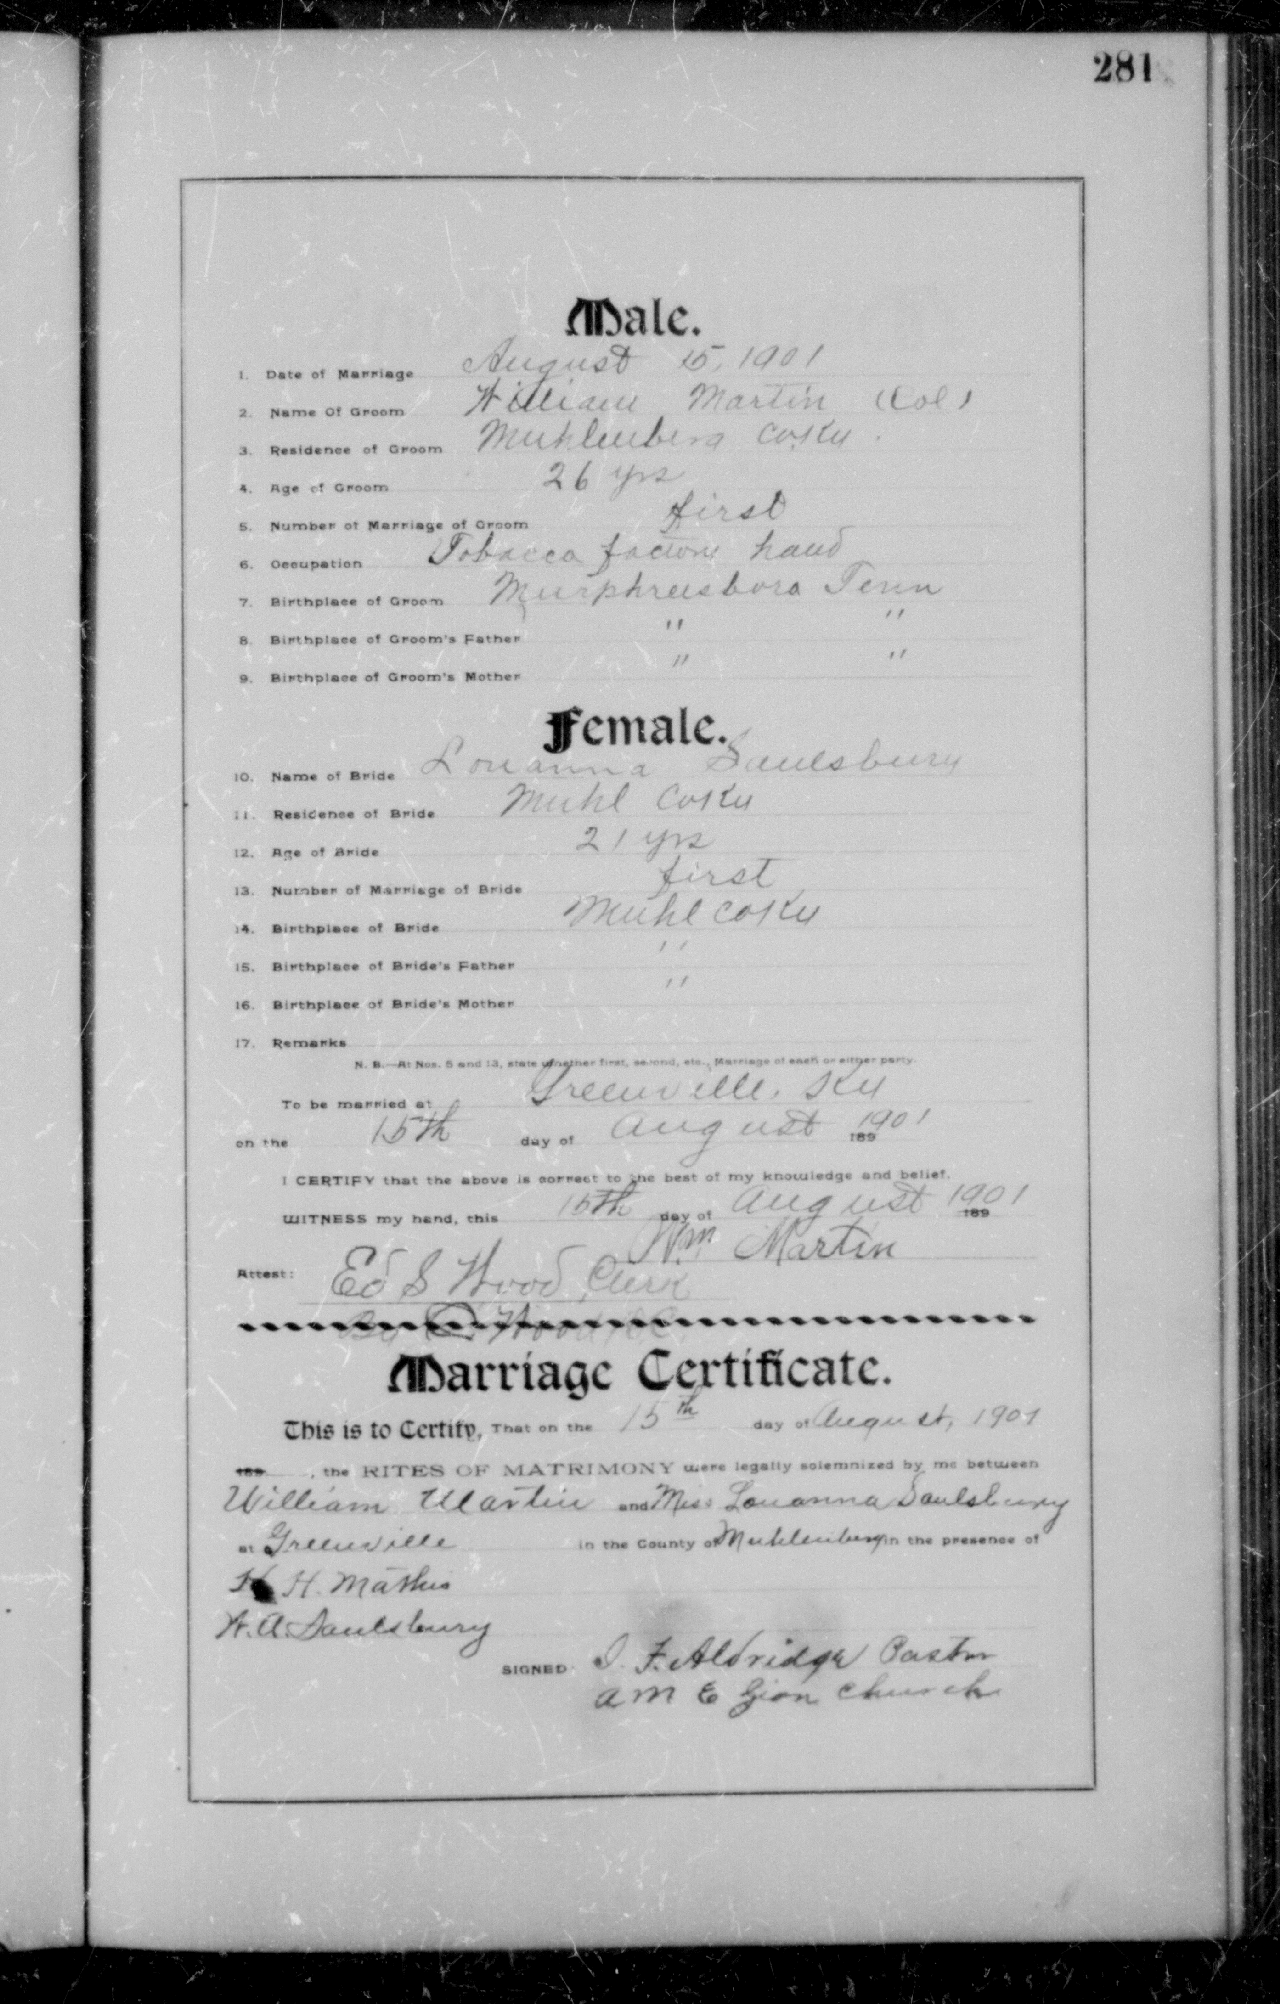 281
Male.
1. Date of Marriage August 15, 1901
2. Name Of Groom William Martin (Col)
3. Residence of Groom Muhlenberg Co Ky.
4. Age of Groom 26 yrs
5. Number of Marriage of Groom first
6. Occupation Tobacco factory hand
7. Birthplace of Groom Murphreesboro Tenn
8. Birthplace of Groom's Father " "
9. Birthplace of Groom's Mother " "
Female.
10. Name of Bride Louanna Saulsbury
11. Residence of Bride Muhl Co Ky
12. Age of Bride 21 yrs
13. Number of Marriage of Bride first
14. Birthplace of Bride Muhl Co Ky
15. Birthplace of Bride's Father "
16. Birthplace of Bride's Mother "
17. Remarks
N. B.—At Nos. 5 and 13, state whether first, second, etc., Marriage of each or either party.
To be married at Greenville, Ky
on the 15th day of August 1901 189
I CERTIFY that the above is correct to the best of my knowledge and belief.
WITNESS my hand, this 15th day of August 1901 189
Wm Martin
Attest: Ed S Wood, Clerk
By Wood, D.C.
Marriage Certificate.
This is to Certify, That on the 15th day of August, 1901
189 , the RITES OF MATRIMONY were legally solemnized by me between
William Martin and Miss Louanna Saulsbury
at Greenville in the County of Muhlenberg in the presence of
H. Mathis
W. A. Saulsbury
SIGNED J. F. Aldridge Pastor
A M E Zion Church